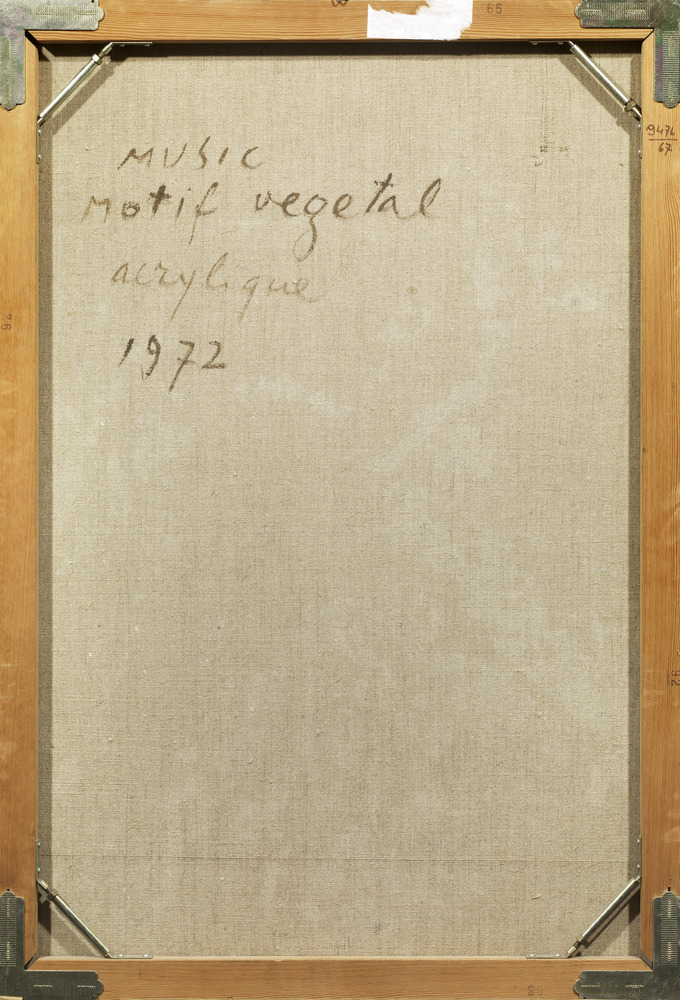 65
9476
67
MUSIC
Motif vegetal
acrylique
1972
76
92
65